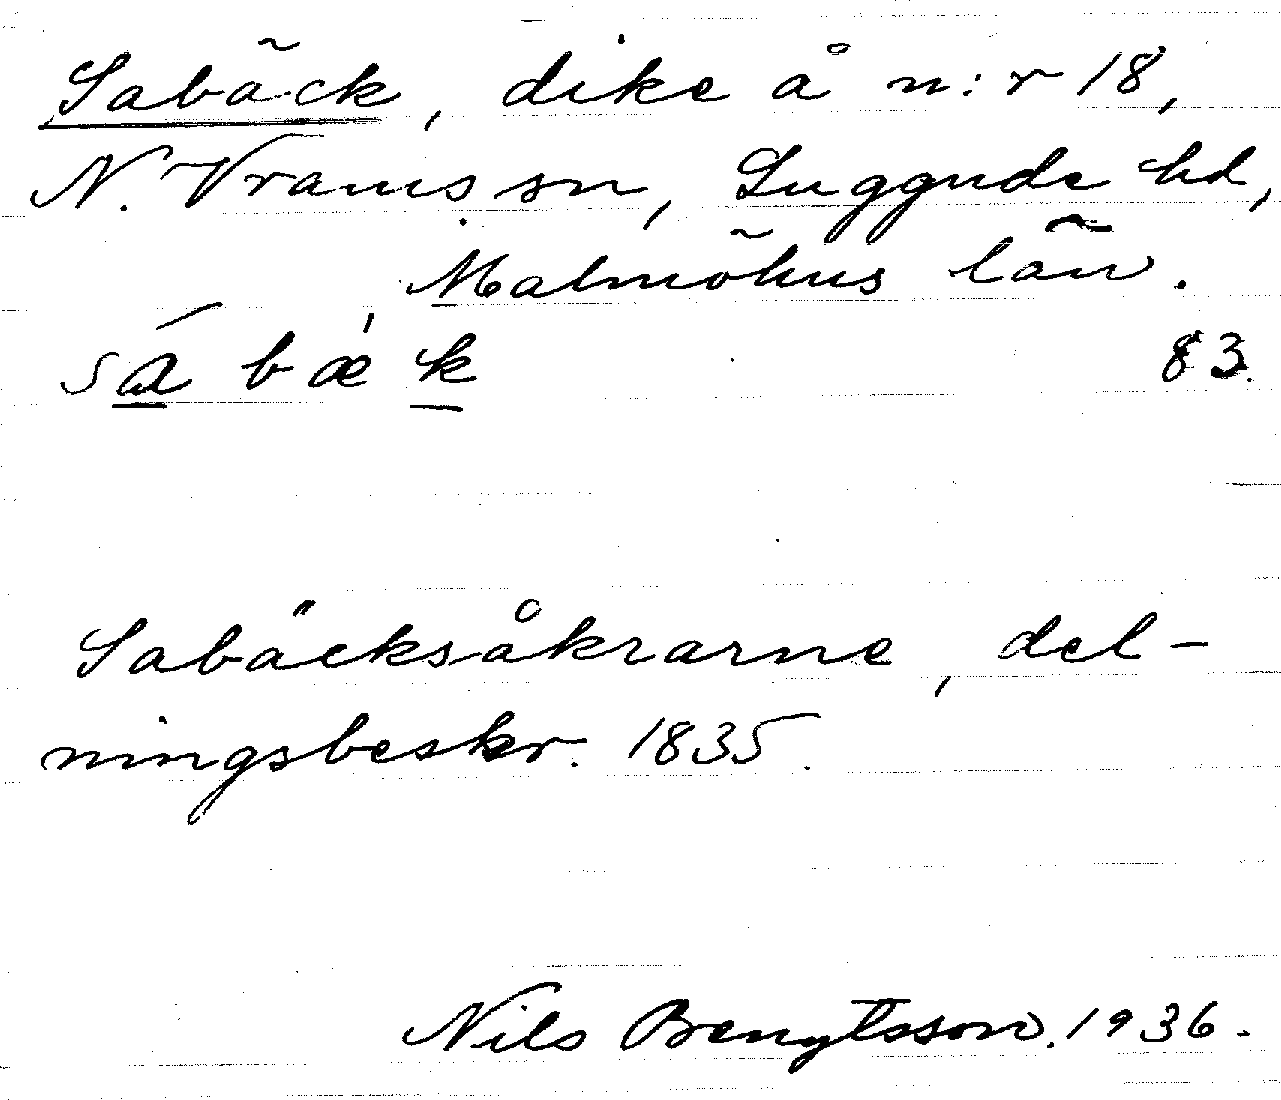 Sabäck, dike å n:r 18,
N. Vrams sn, Luggude hd,
Malmöhus län.
sá bæ̀ k 83.
Sabäcksåkrarne, del-
ningsbeskr. 1835.
Nils Bengtsson. 1936.